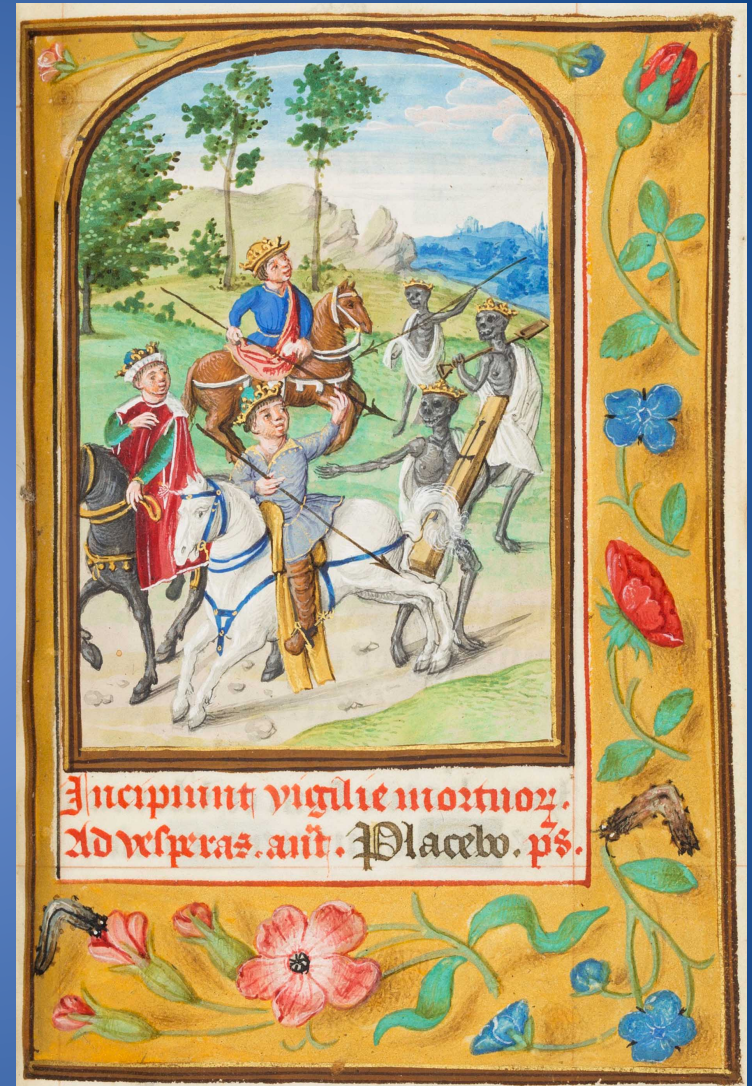 Incipiunt vigilie mortuoꝝ.
Ad vesperas. añt. Placebo. p̄s.